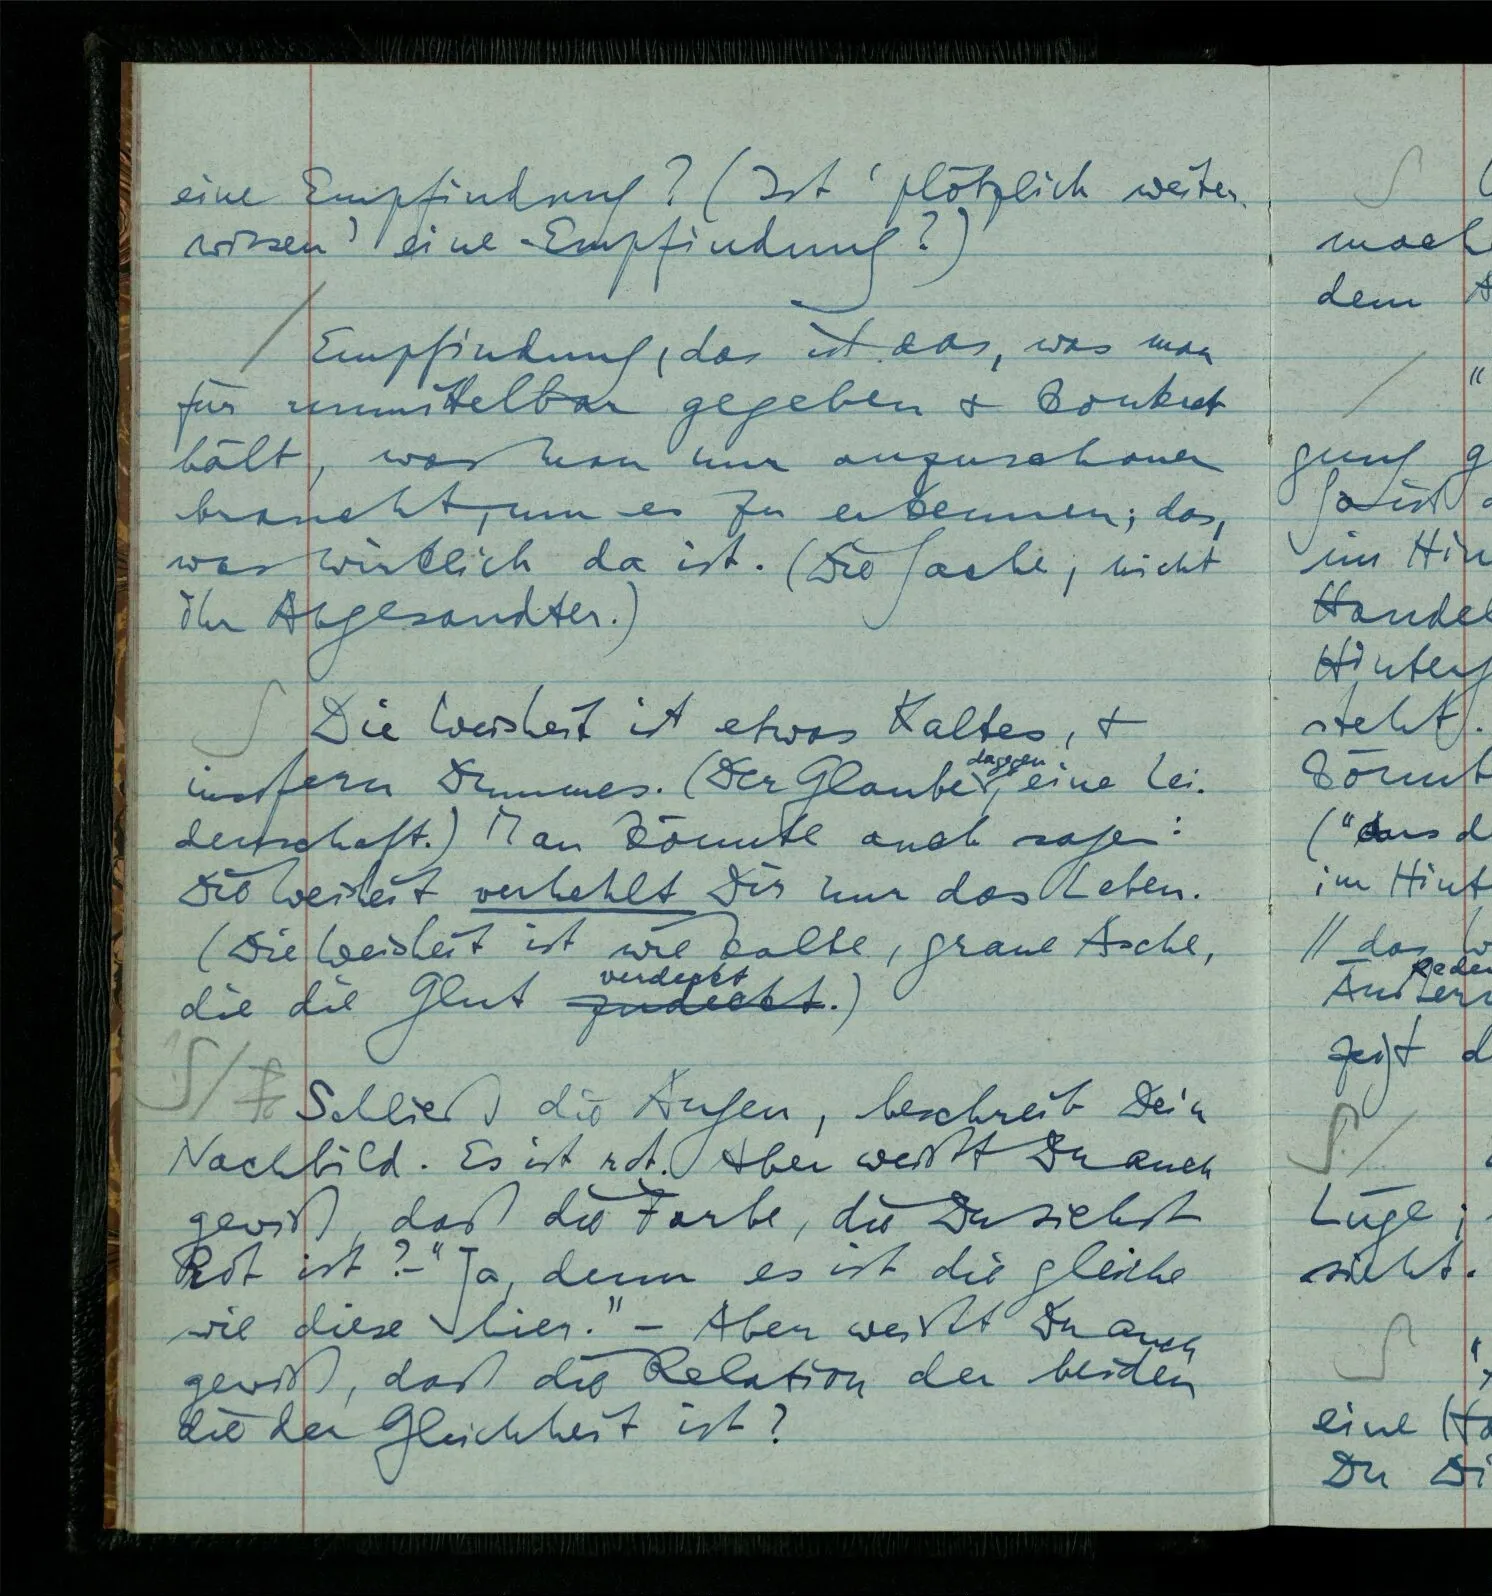 eine Empfindung? (Ist 'plötzlich weiter-
wissen' eine Empfindung?)
/ Empfindung, das ist das, was man
für unmittelbar gegeben & konkret
hält, was man nur anzuschauen
braucht, um es zu erkennen; das,
was wirklich da ist. (Die Sache, nicht
ihr Abgesandter.)
∫ Die Weisheit ist etwas Kaltes, &
insofern Dummes. (Der Glaube dagegen, eine Lei-
denschaft.) Man könnte auch sagen:
Die Weisheit verhehlt Dir nur das Leben.
(Die Weisheit ist wie kalte, graue Asche,
verdeckt
die die Glut zudeckt.)
∫ / Schließ die Augen, beschreib Dein
Nachbild. Es ist rot. Aber weißt Du auch
gewiß, daß die Farbe, die Du siehst
Rot ist? – "Ja, denn es ist die gleiche
wie diese hier." – Aber weißt Du auch
gewiß, daß die Relation der beiden
die der Gleichheit ist?
∫
mach
dem
/ "
gung g
ja ist
im Hin
Handel
Hinterg
steht.
könnt
("aus d
im Hint
// das W
Reden
Äußern
zeigt d
∫ /
Lüge;
sieht.
∫ "
eine Ha
Du Di